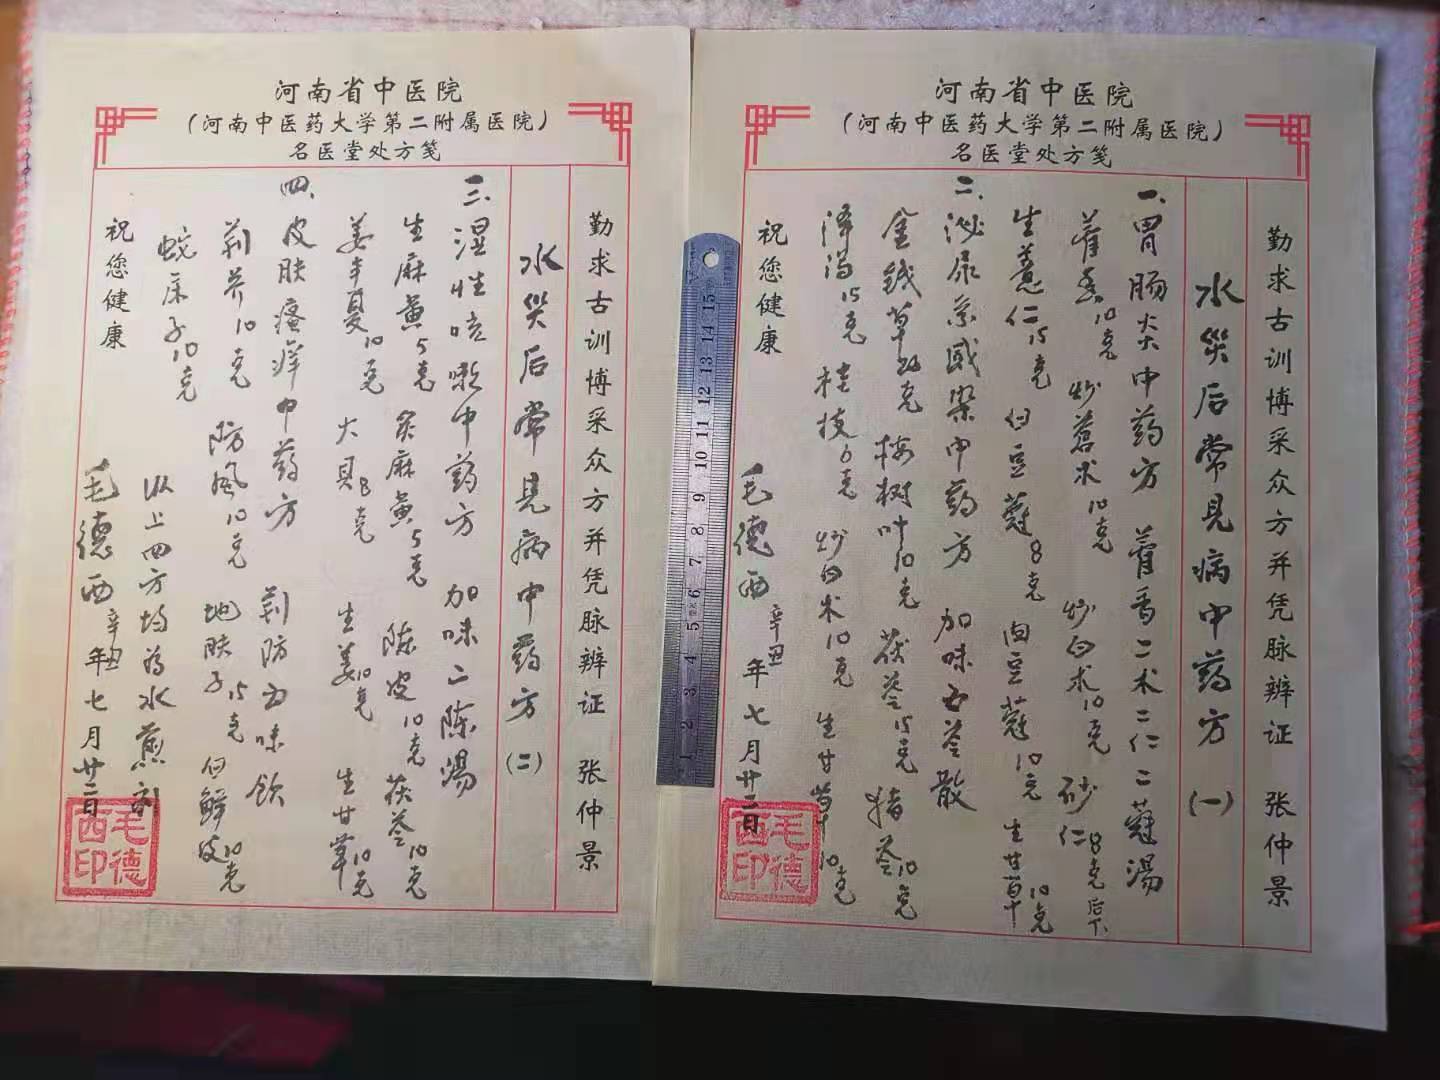 河南省中医院
（河南中医药大学第二附属医院）
名医堂处方笺
勤求古训博采众方并凭脉辨证 张仲景
水灾后常见病中药方（一）
一、胃肠炎中药方 藿香二术二仁二蔻汤
藿香10克 炒苍术10克 炒白术10克 砂仁8克后下
生薏仁15克 白豆蔻8克 肉豆蔻10克 生甘草10克
二、泌尿系感染中药方 加味五苓散
金钱草20克 树叶10克 茯苓15克 猪苓10克
泽泻15克 桂枝6克 炒白术10克 生甘草10克
祝您健康 毛德西 辛丑年七月廿二日
毛德西印
河南省中医院
（河南中医药大学第二附属医院）
名医堂处方笺
勤求古训博采众方并凭脉辨证 张仲景
水灾后常见病中药方（二）
三、湿性咳嗽中药方 加味二陈汤
生麻黄5克 炙麻黄5克 陈皮10克 茯苓10克
姜半夏10克 大贝8克 生姜10克 生甘草10克
四、皮肤瘙痒中药方 荆防五味饮
荆芥10克 防风10克 地肤子15克 白鲜皮10克
蛇床子10克 以上四方均为水煎剂
祝您健康 毛德西 辛丑年七月廿二日
毛德西印
1 2 3 4 5 6 7 8 9 10 11 12 13 14 15